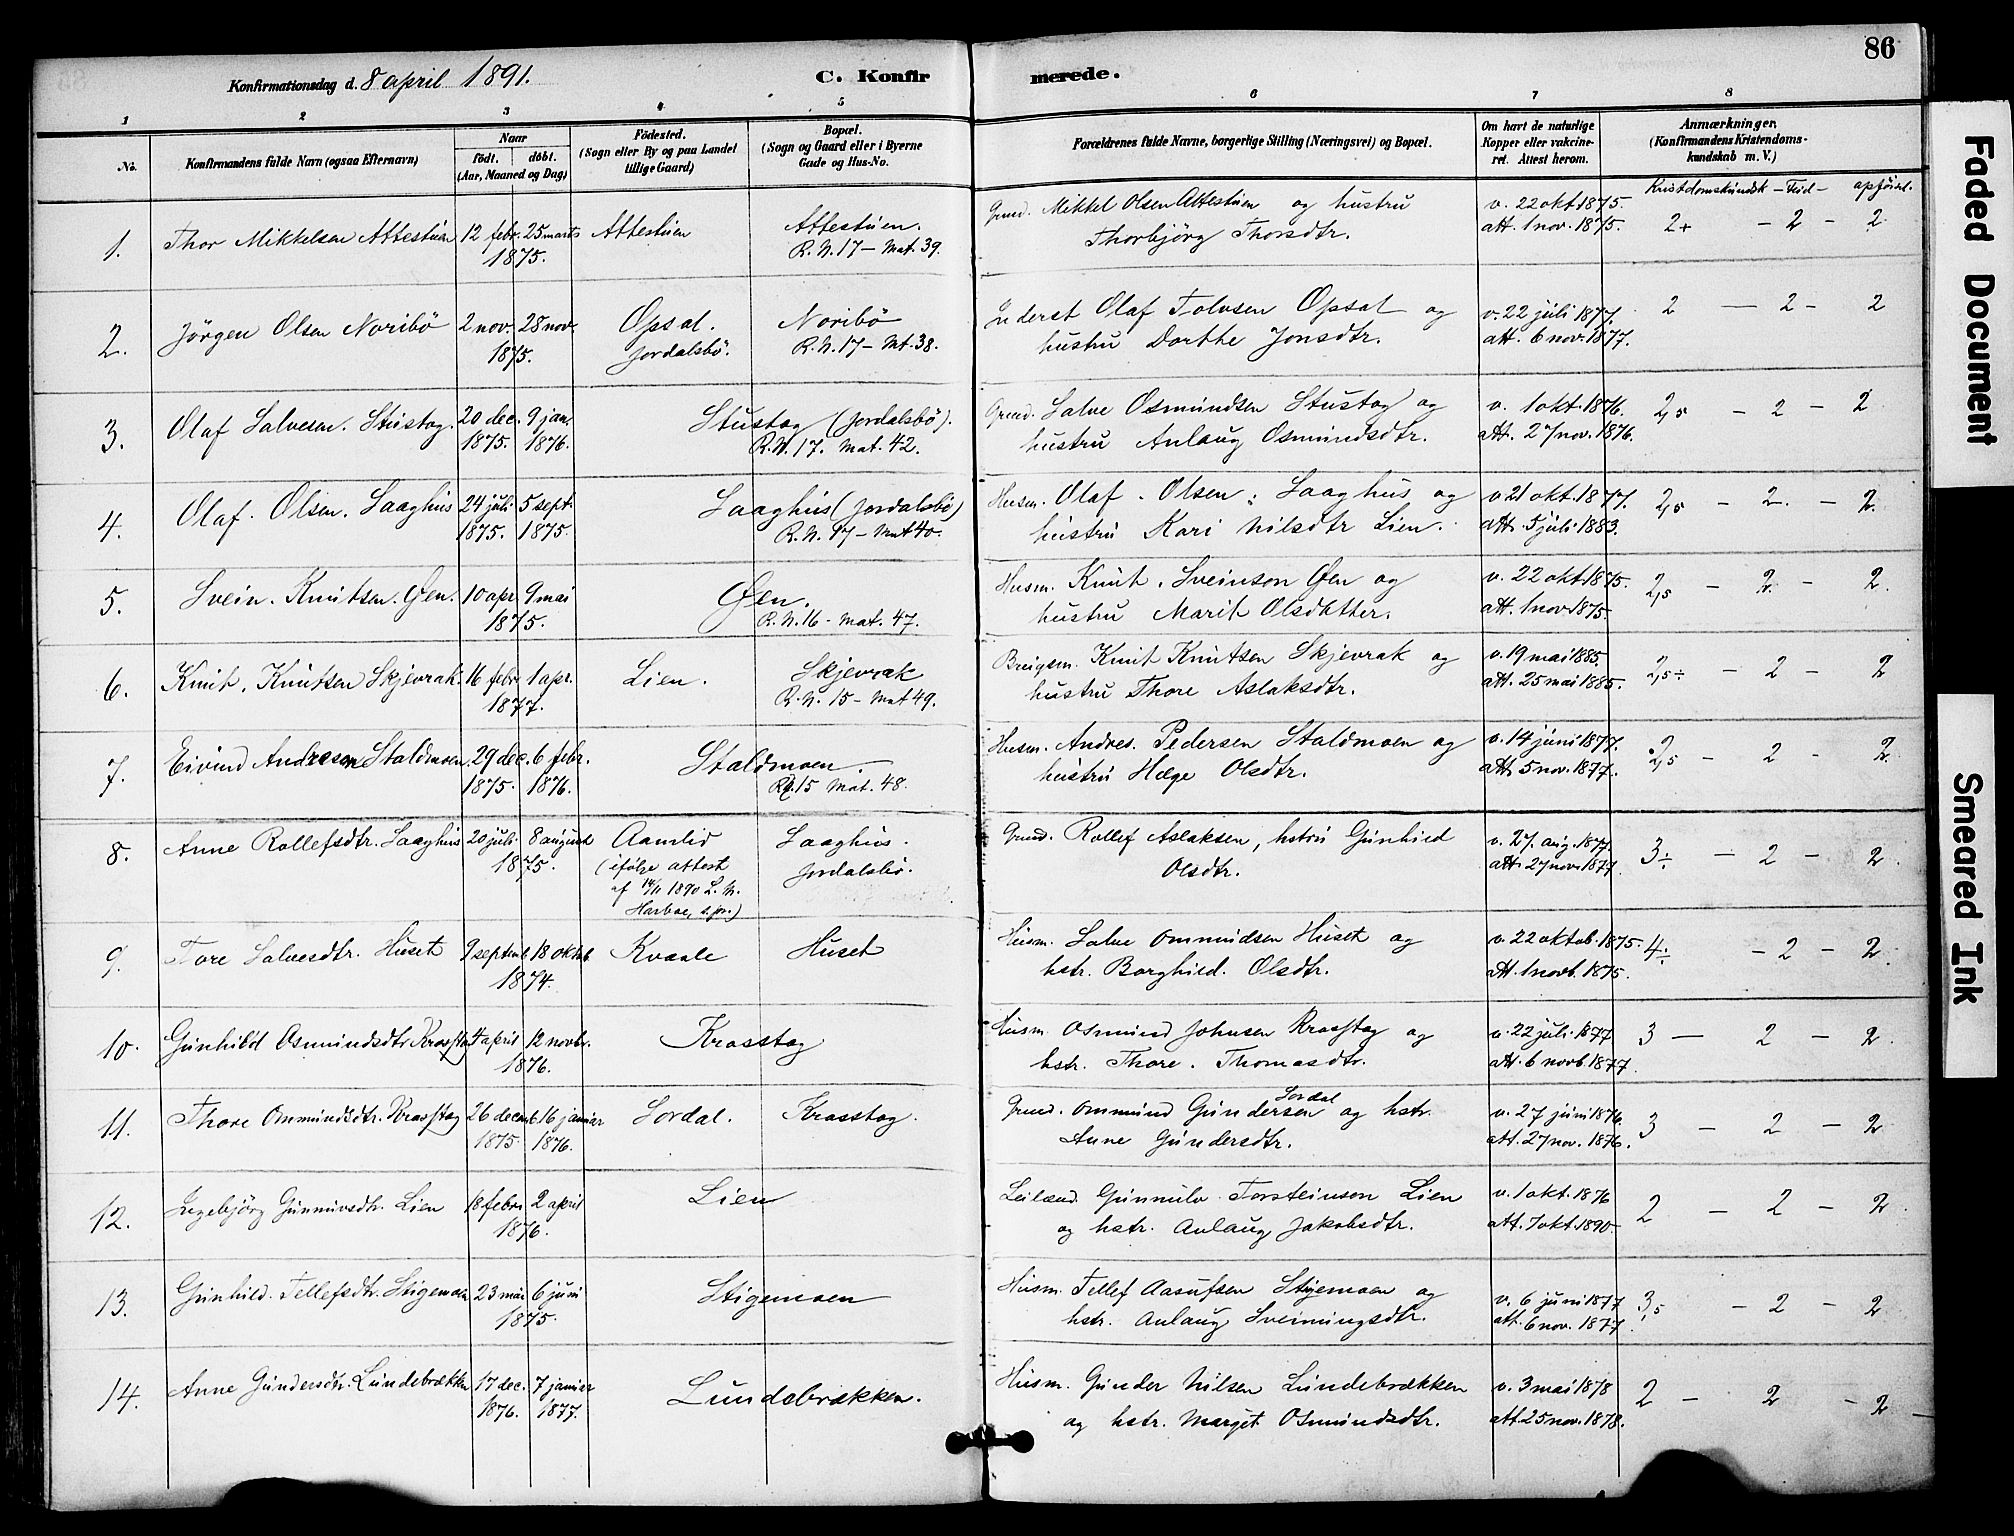 86
Konfirmationsdag d. 8 april 1891.
C. Konfirmerede.
1 2 3 4 5 6 7 8
No.
Konfirmandens fulde Navn (ogsaa Efternavn)
Naar
födt. döbt.
(Aar, Maaned og Dag)
Födested.
(Sogn eller By og paa Landet
tillige Gaard)
Bopæl.
(Sogn og Gaard eller i Byerne
Gade og Hus-No.
Forældrenes fulde Navne, borgerlige Stilling (Næringsvei) og Bopæl.
Om havt de naturlige
Kopper eller vakcine-
ret. Attest herom.
Anmærkninger.
(Konfirmandens Kristendoms-
kundskab m. V.)
Kristdomskundsk - Flid - opförsel.
1. Thor Mikkelsen Attestuen 12 febr. 25 marts Attestuen Attestuen. Grund. Mikkel Olsen Attestuen og hustru v. 22 okt 1875. 2+ - 2 - 2
1875. R.N. 17 - Mat. 39. Thorbjörg Thorsdtr. att. 1 nov. 1875.
2. Jörgen Olsen Noribö 2 nov. 28 nov. Opsal. Noribö Inderst Olaf Tolvsen Opsal og v. 22 juli 1877. 2 - 2 - 2
1875. Jordalsbö. R.N. 17 - Mt. 38. hustru Dorthe Jonsdtr. att. 6 nov. 1877.
3. Olaf Salvesen. Stustog. 20 dec. 9 jan. Stustog (Jordalsbö). Grund. Salve Osmundsen Stustog og v. 1 okt. 1876. 2,5 - 2 - 2
1875. 1876. R.N. 17. Mat. 42. hustru Anlaug Osmundsdtr. att. 27 nov. 1876.
4. Olaf. Olsen. Laaghus 24 juli 5 sept. Laaghus (Jordalsbö) Husm. Olaf. Olsen. Laaghus og v 21 okt. 1877. 2,5 - 2. - 2.
1875. 1875. R.N. 17 - Mat 40. hustru Kari Nilsdtr Lien. att. 5 juli 1883.
5. Svein. Knutsen. Øen. 10 apr 9 mai Øen. Husm. Knut. Sveinson Øen og v. 22 okt 1875. 2,5 - 2. - 2.
1875. R.N. 16 - Mat. 47. hustru Marit Olsdatter. att. 1 nov 1875.
6. Knut. Knutsen Skjevrak. 16 febr 1 apr. Lien. Skjevrak Breigsm. Knut Knutsen Skjevrak og v. 19 mai 1885. 2,5 ÷ - 2 - 2
1877. R.N. 15 - Mat 49. hustru Thore Aslaksdtr. att. 25 mai 1885.
7. Eivind Andresen Staldmoen 29 dec. 6 febr. Staldmoen. Husm. Andres. Pedersen Staldmoen og v. 14 juni 1877. 2,5 - 2 - 2.
1875. 1876. 15 Mat. 48. hustru Hæge Olsdtr. att. 5 nov. 1877.
8. Anne Rollefsdtr. Laaghus 20 juli 8 august Aamlid Laaghus. Grund. Rollef Aslaksen, hstru Gunhild v. 27. aug. 1877. 3 ÷ - 2 - 2.
1875. (ifølge attest Jordalsbö. Olsdtr. att. 27 nov. 1877
af 14/11 1890 L. N.
Harboe, s. pr.)
9. Tore Salvesdtr. Huset 9 septemb 18 oktob Kvaale Huset Husm. Salve Ommundsen Huset og v. 22 oktob. 1875. 4 ÷ - 2 - 2.
1874. hstr. Borghild. Olsdtr. att. 1 novb. 1875.
10. Gunhild Osmundsdtr Krosstog 4 april 12 novbr. Krosstog Husm. Osmund Johnsen Krosstog og v. 22 juli 1877 3 - 2 - 2.
1876. hstr. Thore. Thomasdtr. att. 6 novb. 1877.
11. Thore Ommundsdtr. Krosstog 26 decemb 16 januar Lordal. Krosstog. Grund. Ommund Gundersen Lordal og hstr. v. 27 juni 1876. 3 - 2 - 2
1875 1876. Anne Gundersdtr. att. 27 nov. 1876.
12. Ingebjörg Gunnuvsdtr. Lien 18 febru 2 april Lien Leilænd. Gunnulv Torsteinson Lien v. 1 okt. 1876 2 - 2 - 2.
1876. og hstr. Anlaug Jakobsdtr. att. 7 okt. 1890.
13. Gunhild. Tellefsdtr. Stigemoen 23 mai 6 juni Stigemoen Husm. Tellef Aasufsen Stigemoen og v. 6 juni 1877 3,5 - 2 - 2
1875. hstr. Anlaug Sveinungsdtr. att. 6 nov. 1877.
14. Anne Gundersdtr. Lundebrækken 17 dec. 7 januar Lundebrækken. Husm. Gunder Nilsen Lundebrækken v. 3 mai 1878 2 - 2 - 2
1876. 1877. og hstr. Marget Osmundsdtr. att. 25 nov. 1878.
Faded Document
Smeared Ink